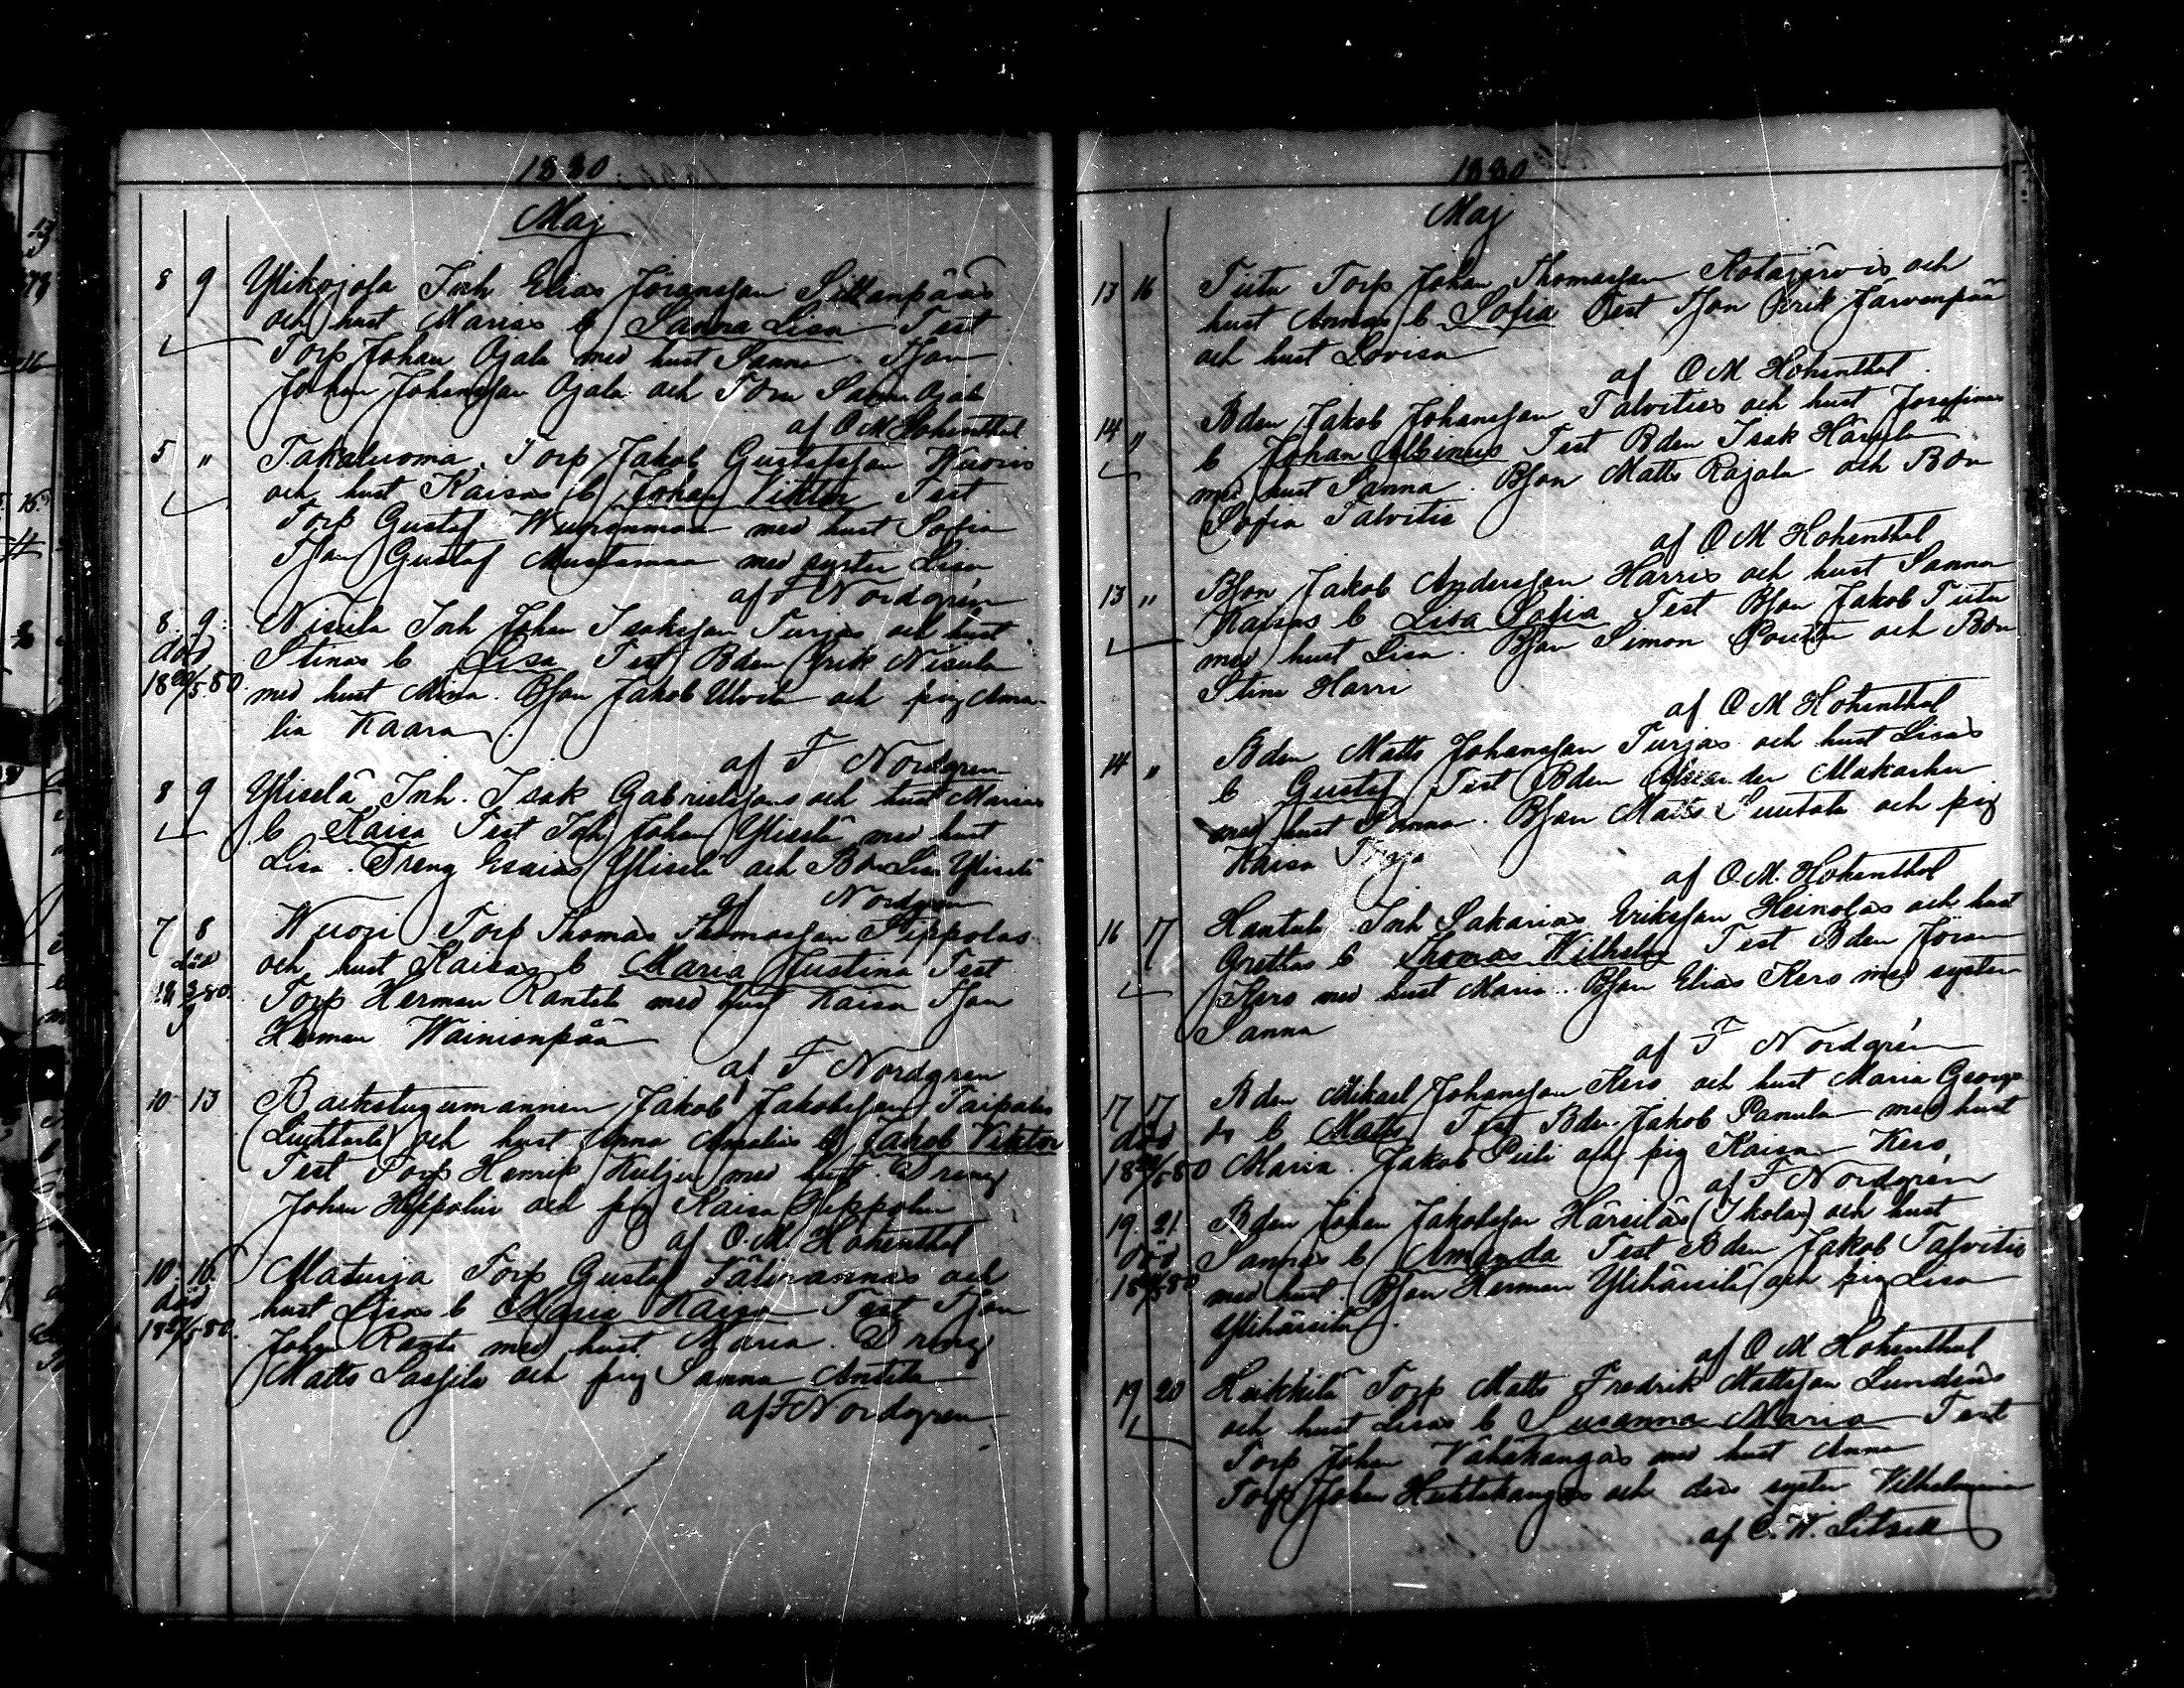 1880
Maj
8 9 Ylikojola Inh Elias Jöransson
och hust Marias b Sanna Lisa Test
Torp Johan Ojala med hust Sanna Tson
Johan Johansson Ojala och Tdrn Sanna Ojala
af O M Hohenthal
5 " Takaluoma Torp Jakob Gustafsson Wuoris
och hust Kaisas b Johan Viktor Test
Torp Gustaf med hust Sofia
Tson Gustaf Mustamaa med syster Lisa
af F Nordgrén
8 9 Nisula Inh Johan Isaksson Turjas och hust
död Stinas b Lisa Test Bden Erik Nisula
18 /5 80 med hust Miina. Bson Jakob Ulvila och pig Ama-
lia Kaara
af F Nordgrén
8 9 Yliselä Inh. Isak Gabrielssons och hust Marias
b Kaisa Test Inh Johan Yliselä med hust
Lisa. Dreng Esaias Yliselä och Bdr Lisa Yliselä
af Nordgren
7 8 Wuori Torp Thomas Thomasson Seppolas
död och hust Kaisas b Maria Justina Test
80 Torp Herman Rantala med hust Kaisa Tson
Herman Wainionpää
af F Nordgren
10 13 Backstugumannen Jakob Jakobsson Taipales
(Luhtala) och hust Anna Amalias b Jakob Viktor
Test Torp Henrik Kulju med hust. Dreng
Johan Hippolin och pig Kaisa Hippolin
af O. M. Hohenthal
10 16 Maturja Torp Gustaf Välirannas och
död hust Lisas b Maria Kaisa Test Tson
18 /5 80 Johan Ranta med hust Maria. Dreng
Matts Lassila och pig Sanna Antila
af F Nordgren
1880
Maj
13 16 Tiitu Torp Johan Thomasson Kotajärvis och
hust Annas b Sofia Test Tson Erik Järvenpää
och hust Lovisa
af O M Hohenthal
14 " Bden Jakob Johansson Talvities och hust Josefinas
b Johan Albinus Test Bden Isak Härsilä
med hust Sanna. Bson Matts Rajala och Bdr
Sofia Talvitie
af O M Hohenthal
13 " Bson Jakob Andersson Harris och hust Sanna
Kaisas b Lisa Sofia Test Bson Jakob Tiitu
med hust Lisa. Bson Simon Pouttu och Bdr
Stina Harri
af O M Hohenthal
14 " Bden Matts Johansson Turjas och hust Lisas
b Gustaf Test Bden Alexander Makarhu
med hust Sanna. Bson Matts Luutala och pig
Kaisa Turja
af O M. Hohenthal
16 17 Hantula Inh Sakarias Eriksson Heinolas och hust
Grettas b Thomas Wilhelm Test Bden Jöran
Kero med hust Maria. Bson Elias Kero med syster
Sanna
af F Nordgrén
17 17 Bden Mikael Johansson Kero och hust Maria George
död b Matts Test Bden Jakob Panula med hust
18 /5 80 Maria. Jakob Piili och pig Kaisa Kero,
af F Nordgrén
19. 21. Bden Johan Jakobsson Härsiläs (Ikola) och hust
död Sannas b Amanda Test Bden Jakob Talvitie
18 /5 80 med hust. Bson Herman Ylihärsilä och pig Lisa
Ylihärsilä.
af O M Hohenthal
19 20 Heikkilä Torp Matts Fredrik Mattsson Lundéns
och hust Lisas b Susanna Maria Test
Torp Johan Vähäkangas med hust Anna
Torp Johan Huhtakangas och dess syster Vilhelmina
af C. W. Litzell